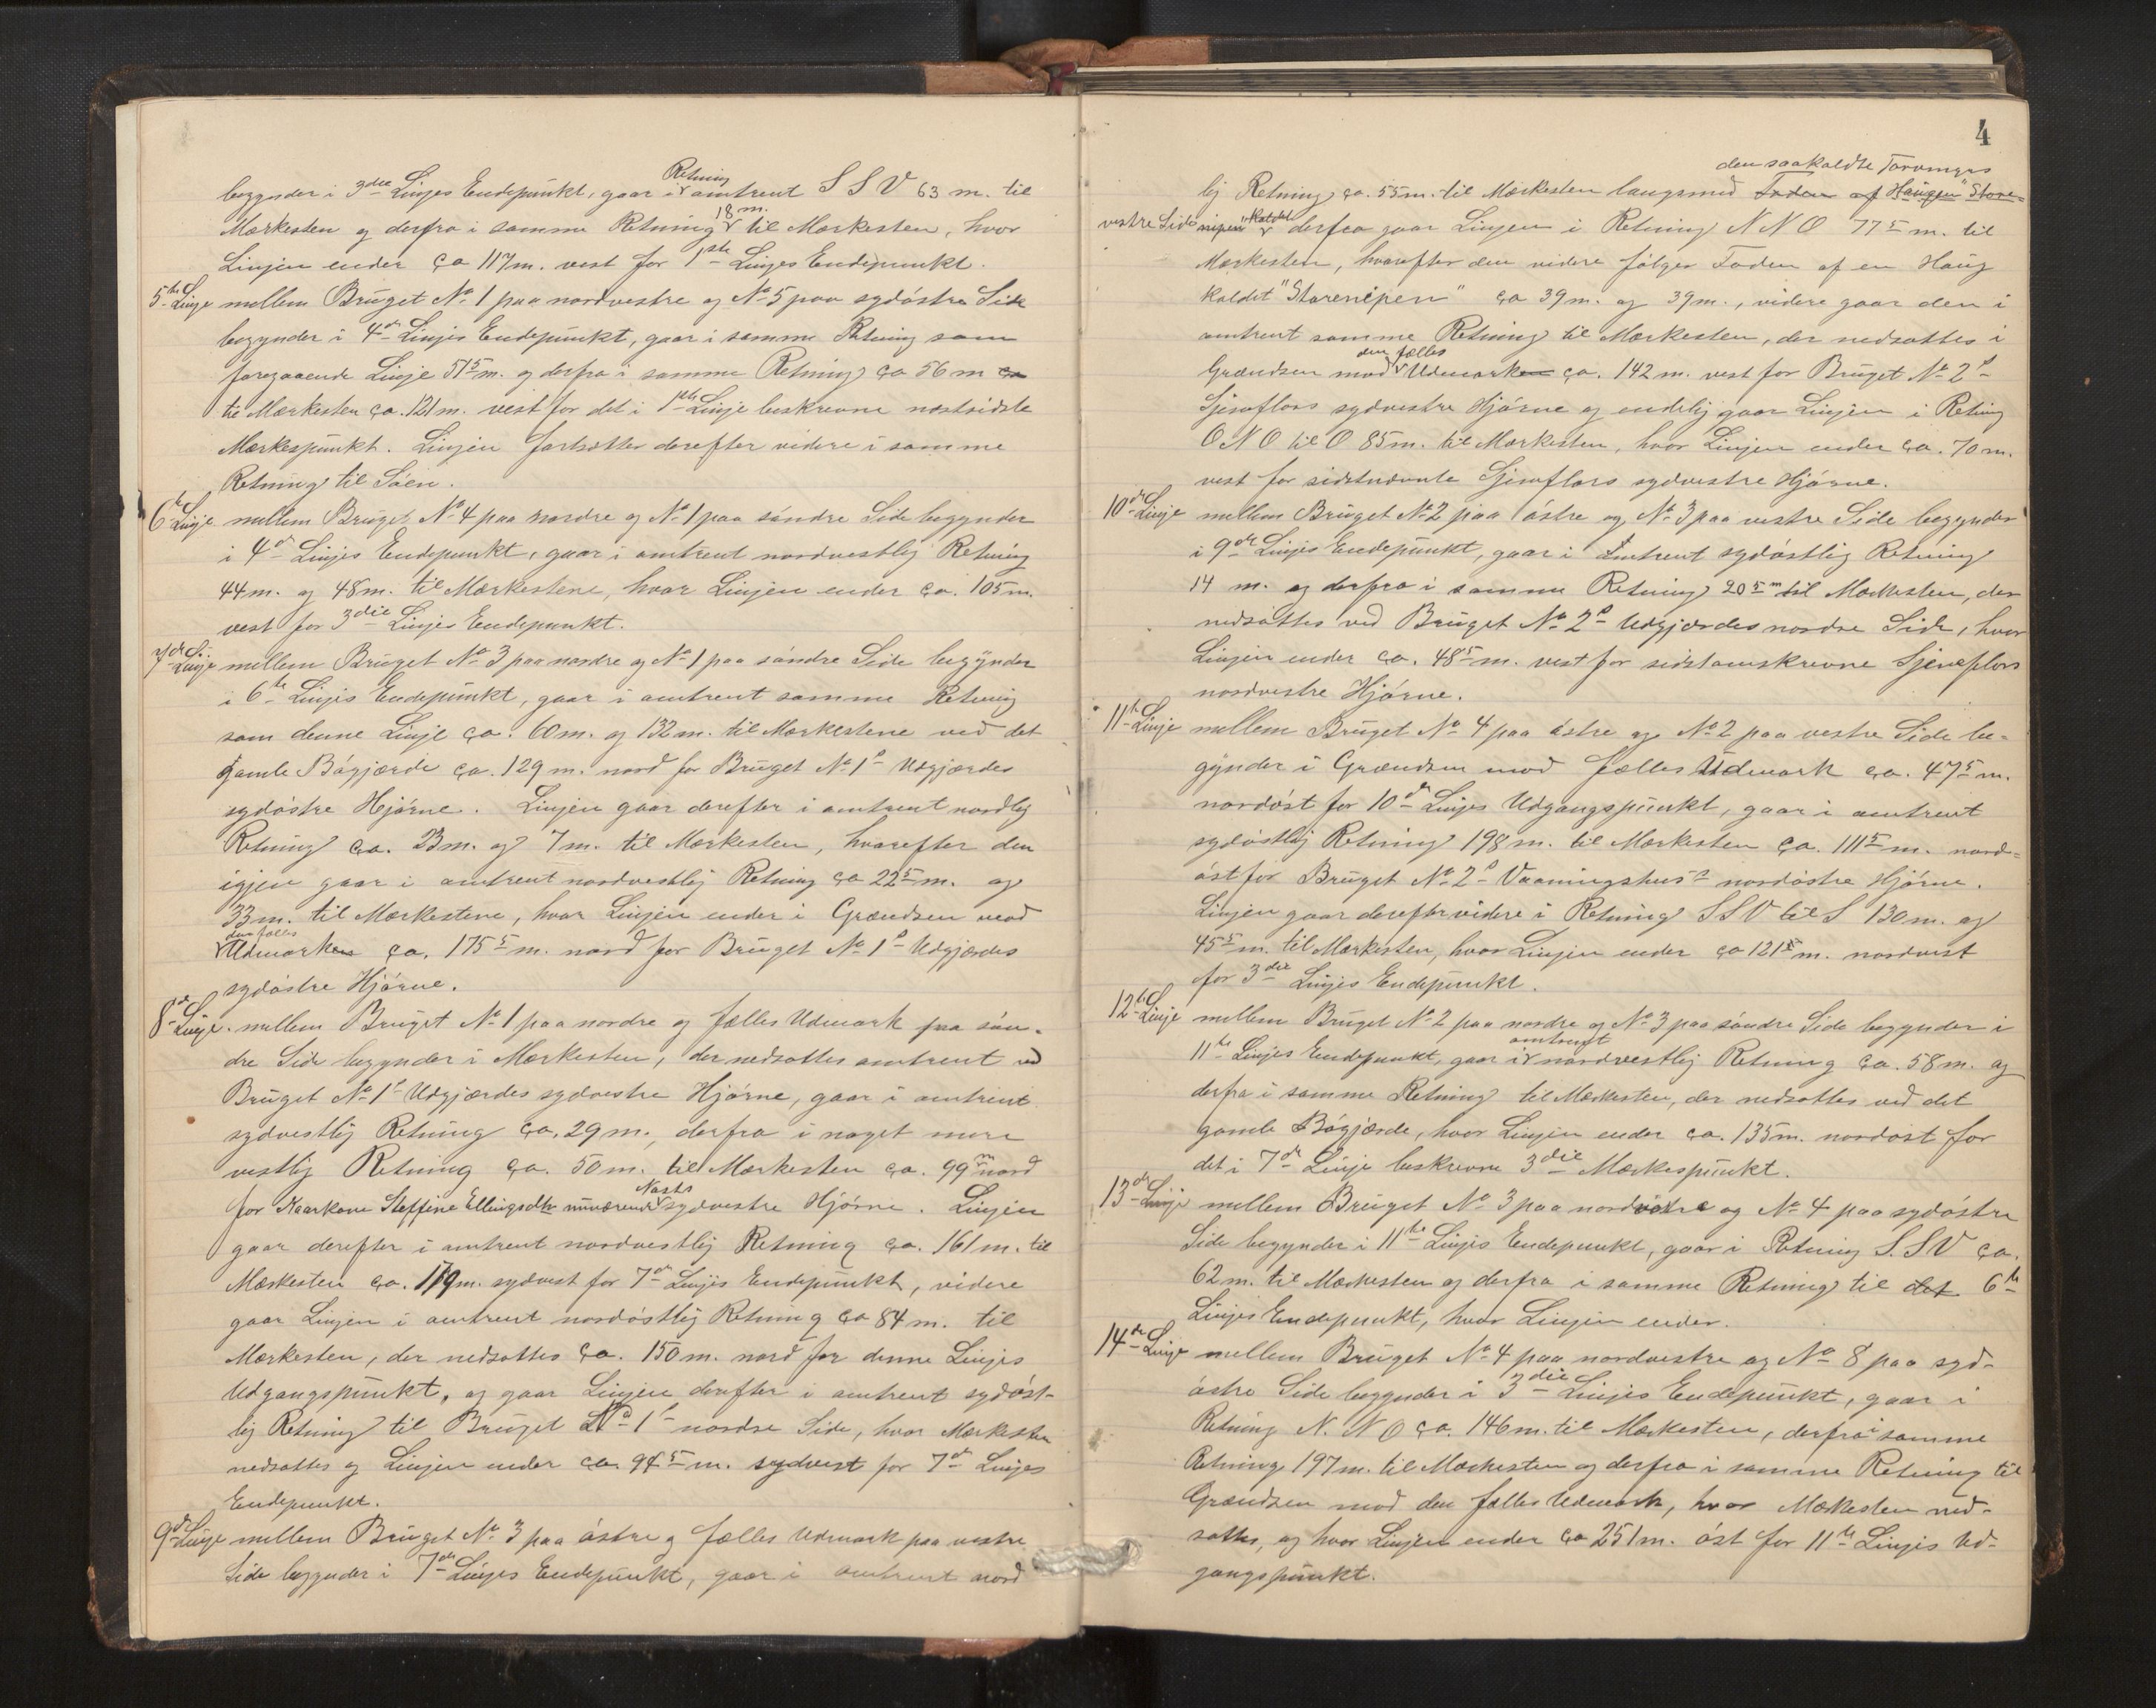 Retning
begynder i 3die Linjes Endepunkt, gaar i amtrent S S V 63 m. til
18 m.
Mærkesten og derfra i samme Retning til Mærkesten, hvor
Linjen ender ca 117m. vest for 1ste Linjes Endepunkt.
5te Linje mellem Bruget No 1 paa nordvestre og No 5 paa sydöstre Side
begynder i 4de Linjes Endepunkt, gaar i samme Retning som
foregaaende Linje 51 5 m. og derfra i samme Retning ca 56 m ca
til Mærkesten ca. 121 m. vest for det i 1ste Linje beskrevne næstsidste
Mærkespunkt. Linjen fortsætter derefter videre i samme
Retning til Söen.
6te Linje mellem Bruget No 4 paa nordre og No 1 paa söndre Side begynder
i 4de Linjes Endepunkt, gaar i amtrent nordvestlig Retning
44 m. og 48 m. til Mærkestene, hvor Linjen ender ca. 105 m.
vest for 3die Linjes Endepunkt.
7de Linje mellem Bruget No 3 paa nordre og No 1 paa söndre Side begynder
i 6te Linjes Endepunkt, gaar i amtrent samme Retning
som denne Linje ca. 60 m. og 132 m. til Mærkestene ved det
gamle Bögjærde ca. 129 m. nord for Bruget No 1s Udgjærdes
sydöstre Hjörne. Linjen gaar derefter i amtrent nordlig
Retning ca. 23 m. og 7 m. til Mærkesten, hvorefter den
igjen gaar i amtrent nordvestlig Retning ca 22 5 m. og
33 m. til Mærkestene, hvor Linjen ender i Grændsen mod
den fælles
Udmarken ca. 175 5 m. nord for Bruget No 1s Udgjærdes
sydöstre Hjörne.
8de Linje. mellem Bruget No 1 paa nordre og fælles Udmark paa sön-
dre Side begynder i Mærkesten, der nedsættes amtrent ved
Bruget No 1s Udgjærdes sydvestre Hjörne, gaar i amtrent
sydvestlig Retning ca. 29 m., derfra i noget mere
vestlig Retning ca. 50 m. til Mærkesten ca. 99 m nord
Nøsts
for Kaarkone Steffine Ellingsdtr nuværende sydvestre Hjörne. Linjen
gaar derefter i amtrent nordvestlig Retning ca. 161 m. til
Mærkesten ca. 179 m. sydvest for 7de Linjes Endepunkt, videre
gaar Linjen i amtrent nordöstlig Retning ca 84 m. til
Mærkesten, der nedsættes ca. 150 m. nord for denne Linjes
Udgangspunkt, og gaar Linjen derefter i amtrent sydöst-
lig Retning til Bruget No 1s nordre Side, hvor Mærkesten
nedsættes og Linjen ender ca. 94 5 m. sydvest for 7de Linjes
Endepunkt.
9de Linje mellem Bruget No 3 paa östre og fælles Udmark paa vestre
Side begynder i 7de Linjes Endepunkt, gaar i amtrent nord
4
den saakaldte Torvmyrs
lig Retning ca. 55 m. til Mærkesten langsmed Foden af Haugen "Store-
vestre Side nipen" kaldet derfra gaar Linjen i Retning N N O 77 5 m. til
Mærkesten, hvorefter den videre fölger Foden af en Haug
kaldet "Storenipen" ca 39 m. og 39 m., videre gaar den i
amtrent samme Retning til Mærkesten, der nedsættes i
den fælles
Grændsen mod Udmarken ca. 142 m. vest for Bruget No 2s
Sjenflors sydvestre Hjörne og endelig gaar Linjen i Retning
O N O til O 85 m. til Mærkesten, hvor Linjen ender ca. 70 m.
vest for sidstnævnte Sjenflors sydvestre Hjörne.
10de Linje mellem Bruget No 2 paa östre og No 3 paa vestre Side begynder
i 9de Linjes Endepunkt, gaar i amtrent sydöstlig Retning
14 m. og derfra i samme Retning 20 5 m til Mærkesten, der
nedsættes ved Bruget No 2s Udgjærdes nordre Side, hvor
Linjen ender ca. 48 5 m. vest for sidstomskrevne Sjeneflors
nordvestre Hjörne.
11te Linje mellem Bruget No 4 paa östre og No 2 paa vestre Side be-
gynder i Grændsen mod fælles Udmark ca. 47 5 m.
nordöst for 10de Linjes Udgangspunkt, gaar i amtrent
sydöstlig Retning 198 m. til Mærkesten ca. 111 5 m. nord-
öst for Bruget No 2s Vaaningshus's nordöstre Hjörne.
Linjen gaar derefter videre i Retning S S V til S 130 m. og
45 5 m. til Mærkesten, hvor Linjen ender ca 121 5 m. nordvest
for 3die Linjes Endepunkt.
12te Linje mellem Bruget No 2 paa nordre og No 3 paa söndre Side begynder i
amtrent
11te Linjes Endepunkt, gaar i nordvestlig Retning ca. 58 m. og
derfra i samme Retning til Mærkesten, der nedsættes ved det
gamle Bögjærde, hvor Linjen ender ca. 135 m. nordöst for
det i 7de Linje beskrevne 3die Mærkespunkt.
13de Linje mellem Bruget No 3 paa nordvestre og No 4 paa sydöstre
Side begynder i 11te Linjes Endepunkt, gaar i Retning S. S V ca.
62 m. til Mærkesten og derfra i samme Retning til det 6te
Linjes Endepunkt, hvor Linjen ender.
14de Linje mellem Bruget No 4 paa nordvestre og No 8 paa syd-
östre Side begynder i 3die Linjes Endepunkt, gaar i
Retning N. N O ca. 146 m. til Mærkesten, derfra i samme
Retning 197 m. til Mærkesten og derfra i samme Retning til
Grændsen mod den fælles Udmark, hvor Mærkesten ned-
sættes, og hvor Linjen ender ca 251 m. öst for 11te Linjes Ud-
gangspunkt.